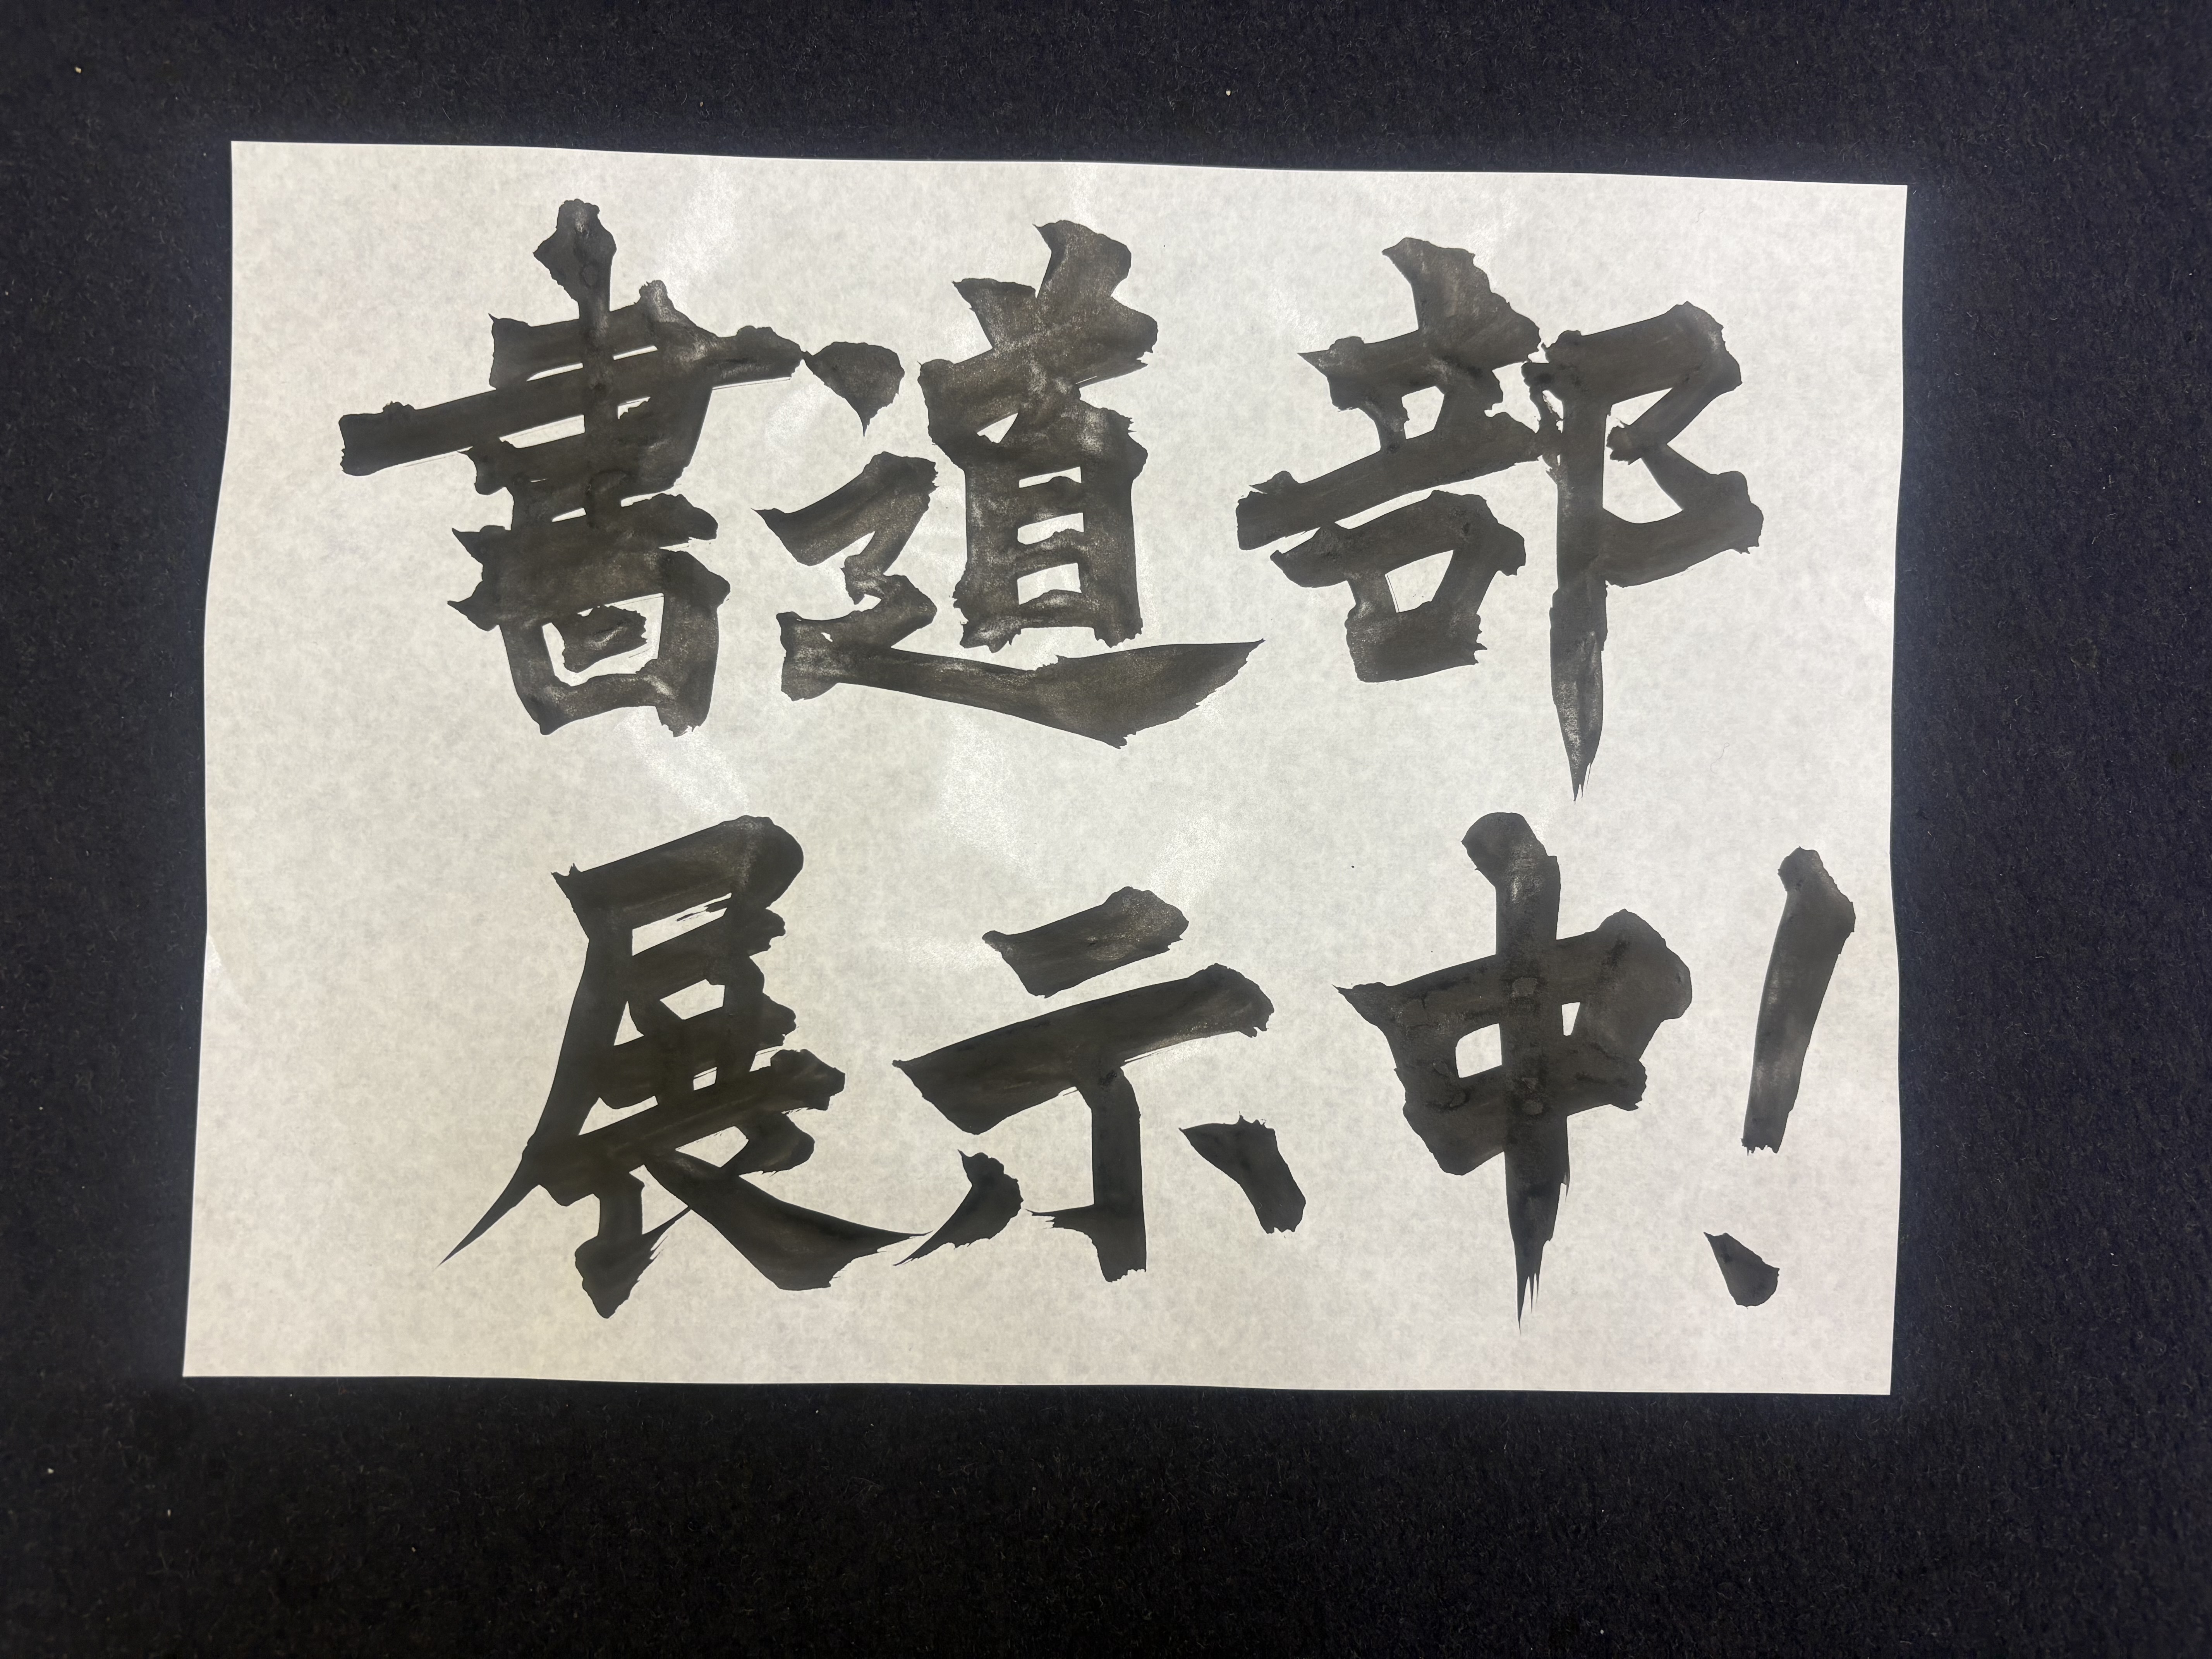 書道部
展示中!